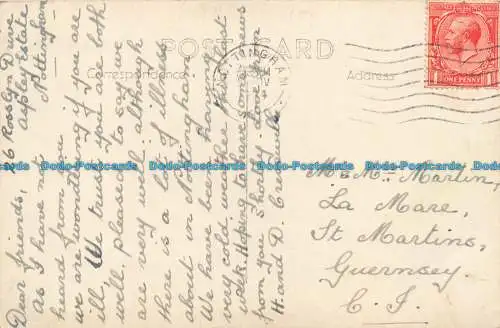 POST CARD
Correspondence.
Address
NOTTINGHAM
ONE PENNY
26 Rosslyn Drive
Aspley Estate
Nottingham
Dear friends,
as I have not
heard from you
we are wondering if you are
ill. We trust you are both
well, pleased to say we
are very well: although
there is a lot of illness
about in Nottingham
We have been having
very cold weather this last
week. Hoping to have some news
from you shortly. Love from
H. and D.
Mr & Mrs Martin
La Mare,
St Martins,
Guernsey
C. I.